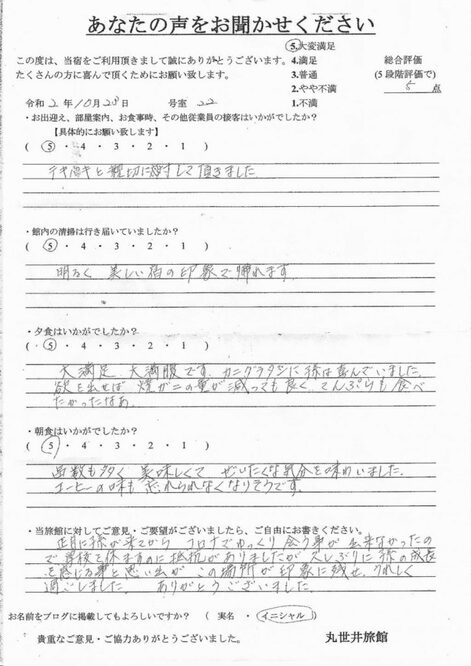 あなたの声をお聞かせください
この度は、当宿をご利用頂きまして誠にありがとうございます。
たくさんの方に喜んで頂くためにお願い致します。
5.大変満足
4.満足
3.普通
2.やや不満
1.不満
総合評価
(5段階評価で)
5 点
令和 2年 10月 28日 号室 22
・お出迎え、部屋案内、お食事時、その他従業員の接客はいかがでしたか?
【具体的にお願い致します】
( 5 ・ 4 ・ 3 ・ 2 ・ 1 )
テキパキと親切に接して頂きました
・館内の清掃は行き届いていましたか?
( 5 ・ 4 ・ 3 ・ 2 ・ 1 )
明るく 美しい宿の印象で帰れます
・夕食はいかがでしたか?
( 5 ・ 4 ・ 3 ・ 2 ・ 1 )
大満足、大満腹です。カニグラタンに孫は喜んでいました。
欲を出せば 焼ガニの量が減っても良く てんぷらも食べ
たかったなあ。
・朝食はいかがでしたか?
( 5 ・ 4 ・ 3 ・ 2 ・ 1 )
品数も多く 美味しくて ぜいたくな気分を味わいました。
コーヒーの味も 忘れられなくなりそうです。
・当旅館に対してご意見・ご要望がございましたら、ご自由にお書きください。
正月に孫が来てから コロナでゆっくり 会う事が出来なかったの
で 学校を休ますのに抵抗がありましたが 久しぶりに孫の成長
を感じる事と思い出が この場所が印象に残せ、うれしく
過ごしました。 ありがとうございました。
お名前をブログに掲載してもよろしいですか? ( 実名 ・ イニシャル )
貴重なご意見・ご協力ありがとうございました。
丸世井旅館